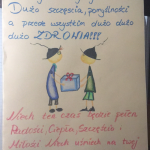 Dużo szczęścia, pomyślności
a przede wszystkim dużo dużo
dużo ZDROWIA!!!
Niech ten czas będzie pełen
Radości, Ciepła, Szczęścia i
Miłości Niech uśmiech na twej